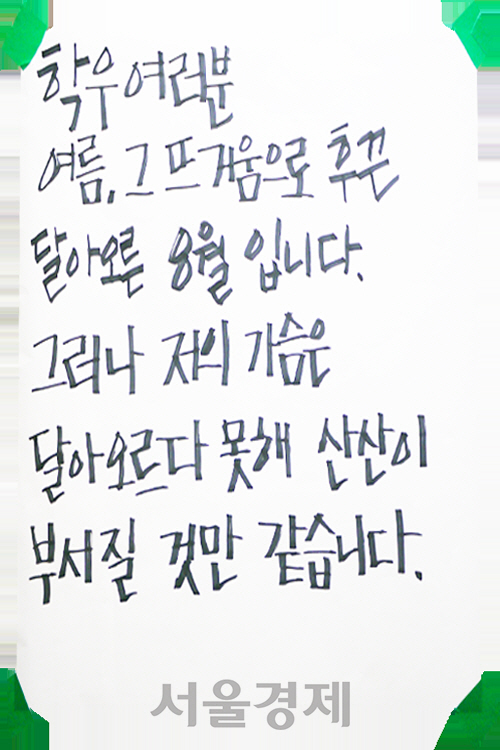 학우 여러분
여름, 그 뜨거움으로 후끈
달아오른 8월 입니다.
그러나 저의 가슴은
달아오르다 못해 산산이
부서질 것만 같습니다.
서울경제